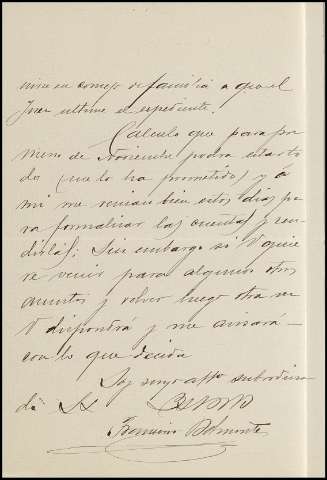 nirse en consejo de familia a que el
Juez ultime el expediente.
Calculo que para pri
mero de Noviembre podra estar to
do (me lo ha prometido) y a
mi me venian bien estos dias pa
ra formalizar las cuentas y ren
dirlas; Sin embargo si V quie
re venir para algunos otros
asuntos y volver luego otra vez
V dispondrá y me avisará
con lo que decida
Soy suyo affo subordina
do
Belmonte